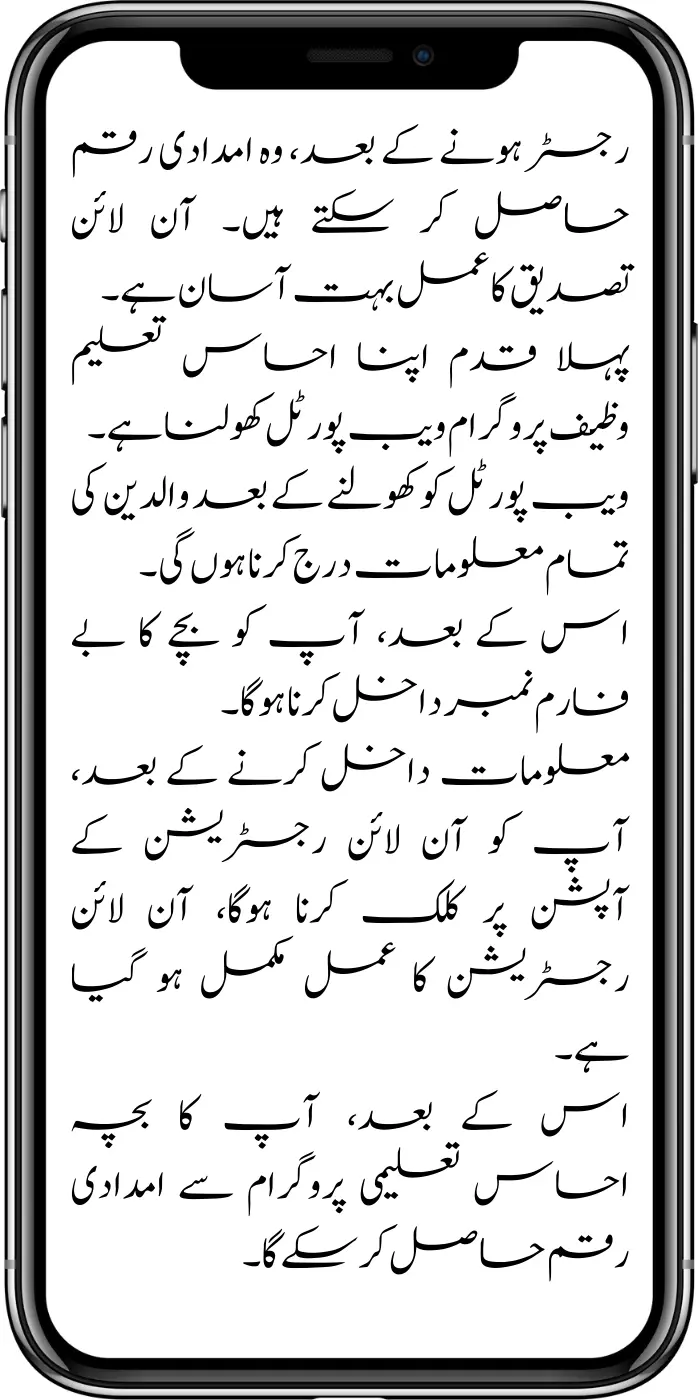 رجسٹر ہونے کے بعد، وہ امدادی رقم
حاصل کر سکتے ہیں۔ آن لائن
تصدیق کا عمل بہت آسان ہے۔
پہلا قدم اپنا احساس تعلیم
وظیفہ پروگرام ویب پورٹل کھولنا ہے۔
ویب پورٹل کو کھولنے کے بعد والدین کی
تمام معلومات درج کرنا ہوں گی۔
اس کے بعد، آپ کو بچے کا بے
فارم نمبر داخل کرنا ہوگا۔
معلومات داخل کرنے کے بعد،
آپ کو آن لائن رجسٹریشن کے
آپشن پر کلک کرنا ہوگا، آن لائن
رجسٹریشن کا عمل مکمل ہو گیا
ہے۔
اس کے بعد، آپ کا بچہ
احساس تعلیمی پروگرام سے امدادی
رقم حاصل کر سکے گا۔